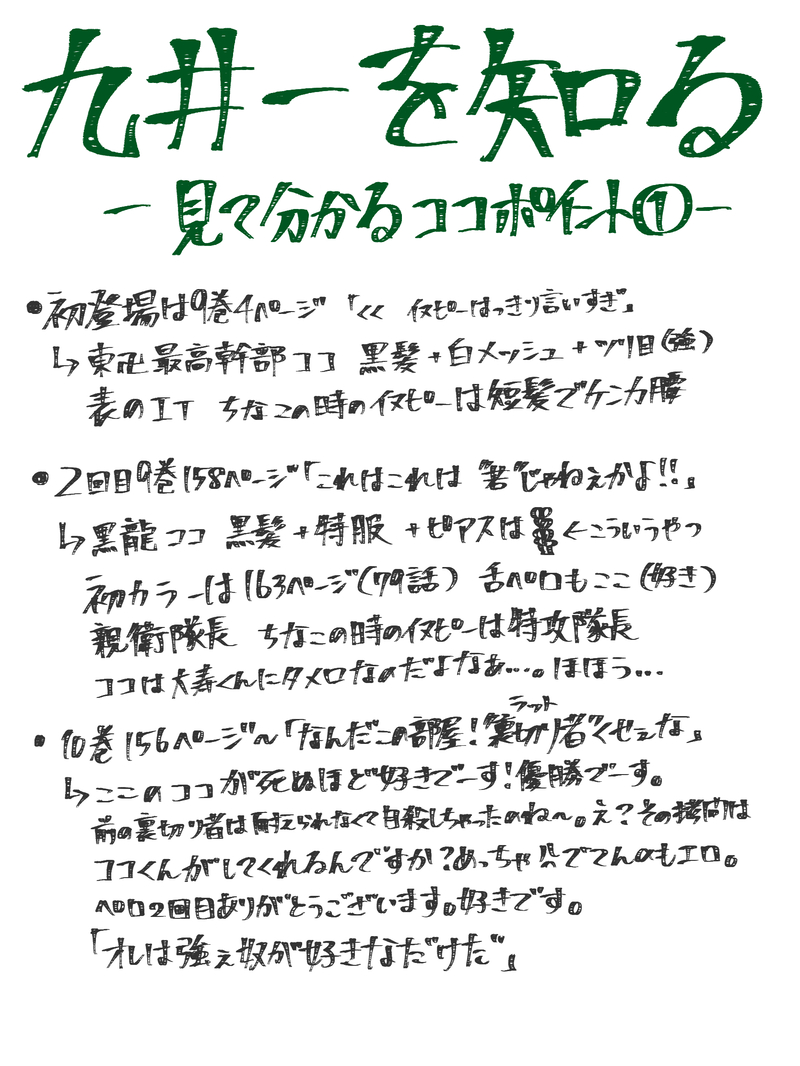 九井一を知る
ー見て分かるココポイント①ー
●初登場は9巻4ページ「くく イヌピーはっきり言いすぎ」
↳東卍最高幹部ココ 黒髪+白メッシュ+ツリ目(強)
表のIT ちなこの時のイヌピーは短髪でケンカ腰
●2回目9巻158ページ「これはこれは "若"じゃねぇかよ!!」
↳黒龍ココ 黒髪+特服 +ピアスは ←こういうやつ
初カラーは163ページ(79話) 舌ペロもここ(好き)
親衛隊長 ちなこの時のイヌピーは特攻隊長
ココは大寿くんにタメ口なのだよなぁ…。ほほう…
●10巻156ページ〜「なんだこの部屋!"裏切り者"くせぇな」
ラット
↳ここのココが死ぬほど好きでーす!優勝でーす。
前の裏切り者は耐えられなくて自殺しちゃったのね〜。え?その拷問は
ココくんがしてくれるんですか?めっちゃ!!!でてんのもエロ。
ペロ2回目ありがとうございます。好きです。
「オレは強ぇ奴が好きなだけだ」